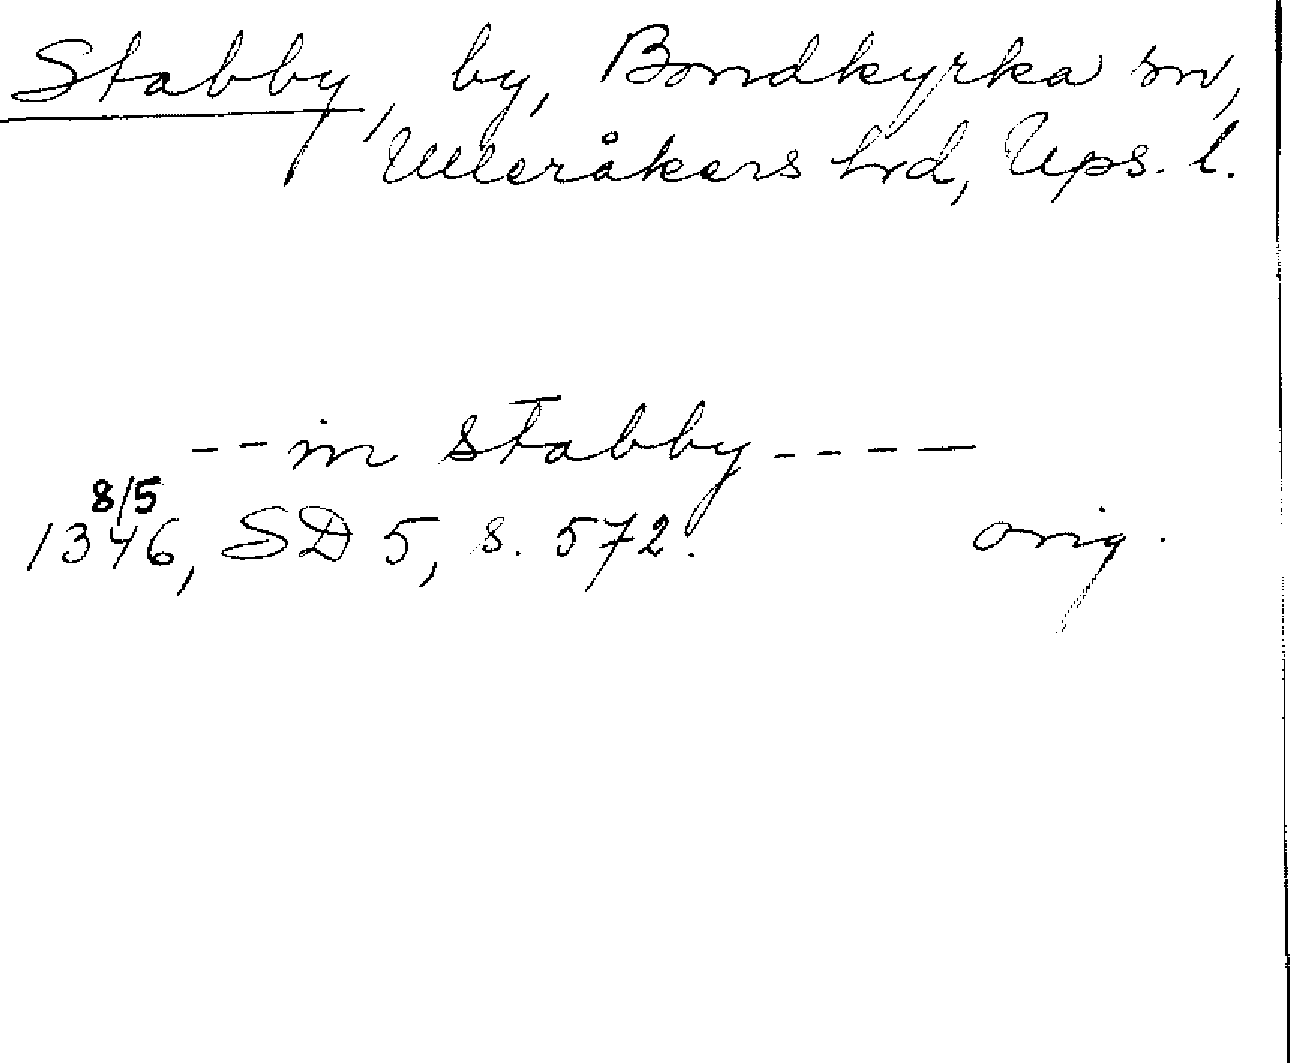 Stabby, by, Bondkyrka sn,
Ulleråkers hrd, Ups. l.
-- in Stabby ----
8/5
1346, SD 5, s. 572. orig.